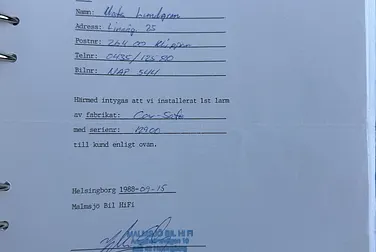 Namn: Mats Lindgren
Adress: Linväg. 25
Postnr: 264 00 Klippan
Telnr: 0435/125 50
Bilnr: NAP 544
Härmed intygas att vi installerat 1st larm
av fabrikat: Cov-Safe
med serienr: 12900
till kund enligt ovan.
Helsingborg 1988-09-15
Malmsjö Bil HiFi
MALMSJÖ BIL HI FI